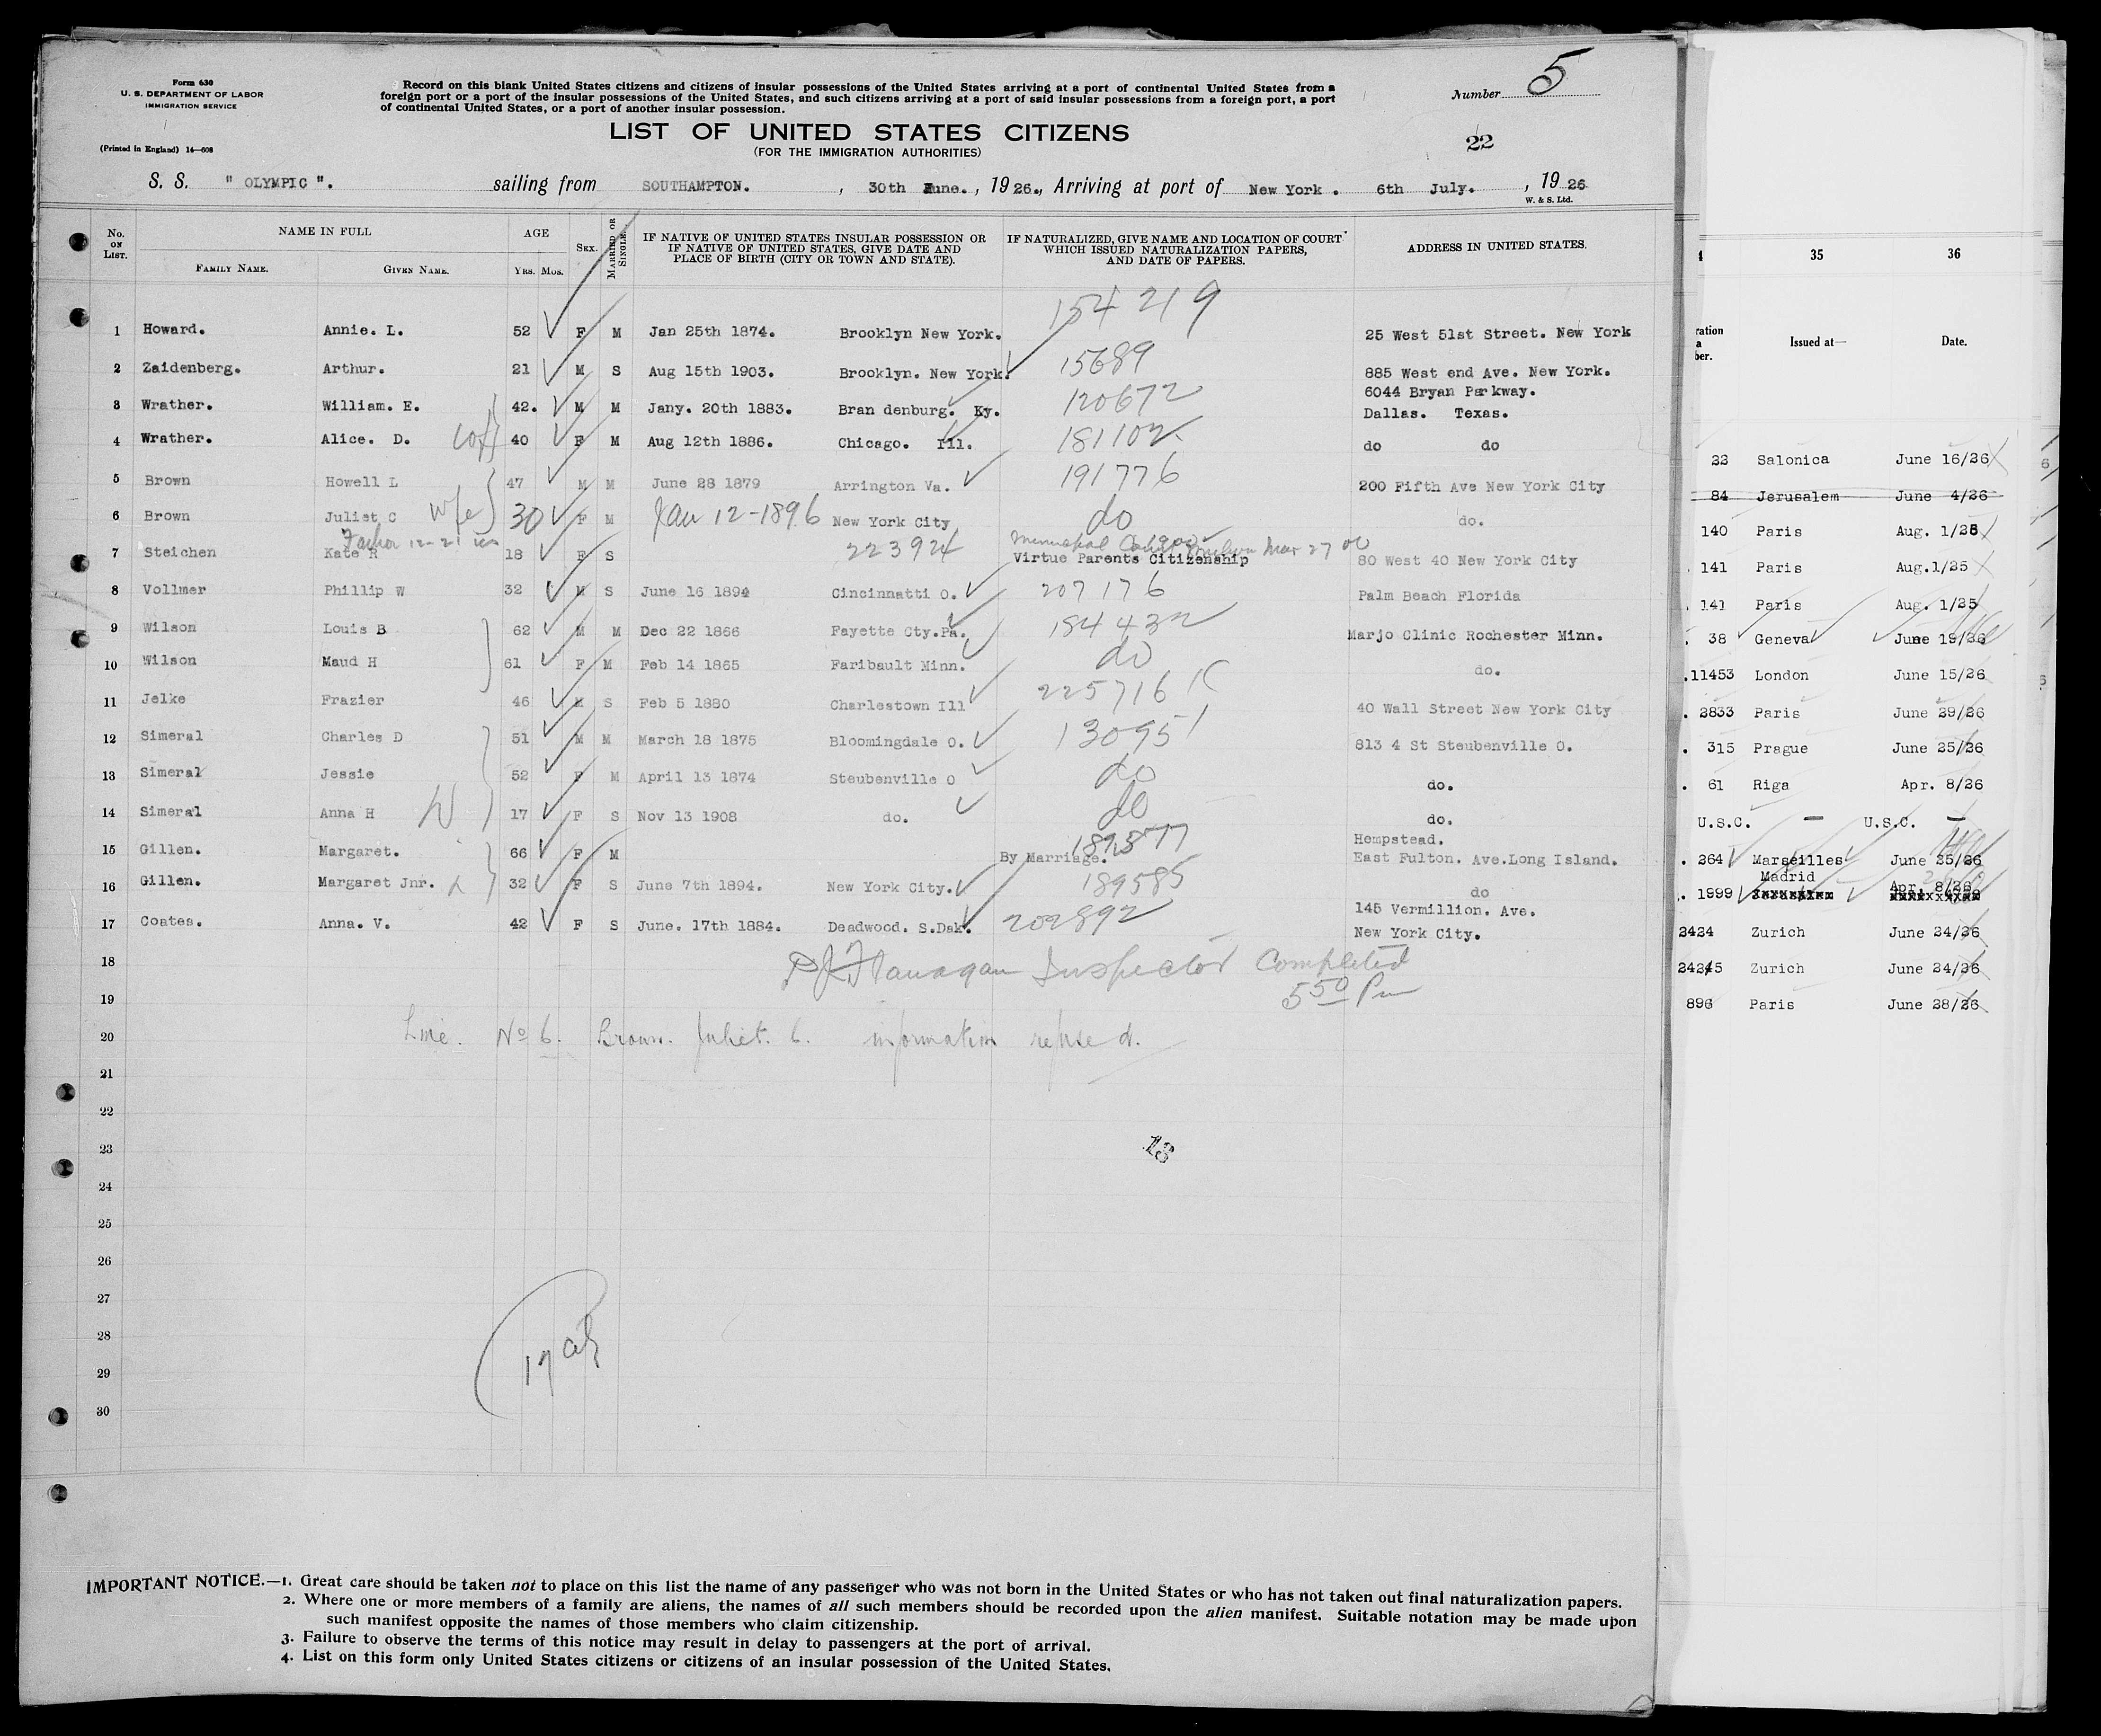 Form 630
U. S. DEPARTMENT OF LABOR
IMMIGRATION SERVICE
(Printed in England) 14—608
Record on this blank United States citizens and citizens of insular possessions of the United States arriving at a port of continental United States from a
foreign port or a port of the insular possessions of the United States, and such citizens arriving at a port of said insular possessions from a foreign port, a port
of continental United States, or a port of another insular possession.
Number 5
LIST OF UNITED STATES CITIZENS
(FOR THE IMMIGRATION AUTHORITIES)
22
S. S. " OLYMPIC ". sailing from SOUTHAMPTON. , 30th June. , 1926., Arriving at port of New York . 6th July. , 1926
W. & S. Ltd.
No. ON LIST. NAME IN FULL FAMILY NAME. GIVEN NAME. AGE YRS. MOS. SEX. MARRIED OR SINGLE. IF NATIVE OF UNITED STATES INSULAR POSSESSION OR IF NATIVE OF UNITED STATES, GIVE DATE AND PLACE OF BIRTH (CITY OR TOWN AND STATE). IF NATURALIZED, GIVE NAME AND LOCATION OF COURT WHICH ISSUED NATURALIZATION PAPERS, AND DATE OF PAPERS. ADDRESS IN UNITED STATES.
1 Howard. Annie. L. 52 F M Jan 25th 1874. Brooklyn New York. 154219 25 West 51st Street. New York
2 Zaidenberg. Arthur. 21 M S Aug 15th 1903. Brooklyn. New York. 15689 885 West end Ave. New York.
3 Wrather. William. E. 42. M M Jany. 20th 1883. Bran denburg. Ky. 120672 6044 Bryan Parkway.
Dallas. Texas.
4 Wrather. Alice. D. 40 F M Aug 12th 1886. Chicago. Ill. 181102 do do
5 Brown Howell L 47 M M June 28 1879 Arrington Va. 191776 200 Fifth Ave New York City
6 Brown Juliet C wife 30 F M Jan 12-1896 New York City do do.
7 Steichen Kate R 18 F S 223924 Virtue Parents Citizenship 80 West 40 New York City
8 Vollmer Phillip W 32 M S June 16 1894 Cincinnatti O. 207176 Palm Beach Florida
9 Wilson Louis B 62 M M Dec 22 1866 Fayette Cty.Pa. 184432 Marjo Clinic Rochester Minn.
10 Wilson Maud H 61 F M Feb 14 1865 Faribault Minn. do do.
11 Jelke Frazier 46 M S Feb 5 1880 Charlestown Ill 225716 40 Wall Street New York City
12 Simeral Charles D 51 M M March 18 1875 Bloomingdale O. 130951 813 4 St Steubenville O.
13 Simeral Jessie 52 F M April 13 1874 Steubenville O do do.
14 Simeral Anna H 17 F S Nov 13 1908 do. do do.
15 Gillen. Margaret. 66 F M By Marriage. Hempstead.
East Fulton. Ave.Long Island.
16 Gillen. Margaret Jnr. 32 F S June 7th 1894. New York City. 189585 do
17 Coates. Anna. V. 42 F S June. 17th 1884. Deadwood. S.Dak. 202892 145 Vermillion. Ave.
New York City.
18 PJ Flanagan Inspector Completed
19 5 50 Pm
20 Line. No 6. Brown. Juliet. C. information refused.
21
22
23 13
24
25
26
27
28 17
29
30
IMPORTANT NOTICE.—1. Great care should be taken not to place on this list the name of any passenger who was not born in the United States or who has not taken out final naturalization papers.
2. Where one or more members of a family are aliens, the names of all such members should be recorded upon the alien manifest. Suitable notation may be made upon
such manifest opposite the names of those members who claim citizenship.
3. Failure to observe the terms of this notice may result in delay to passengers at the port of arrival.
4. List on this form only United States citizens or citizens of an insular possession of the United States.
35 36
Issued at— Date.
22 Salonica June 16/26
84 Jerusalem June 4/26
140 Paris Aug. 1/25
141 Paris Aug.1/25
141 Paris Aug. 1/25
38 Geneva June 19/26
11453 London June 15/26
2833 Paris June 29/26
315 Prague June 25/26
61 Riga Apr. 8/26
U.S.C. — U.S.C. —
264 Marseilles June 25/26
1999 Madrid Apr. 8/26
2424 Zurich June 24/26
24245 Zurich June 24/26
896 Paris June 28/26